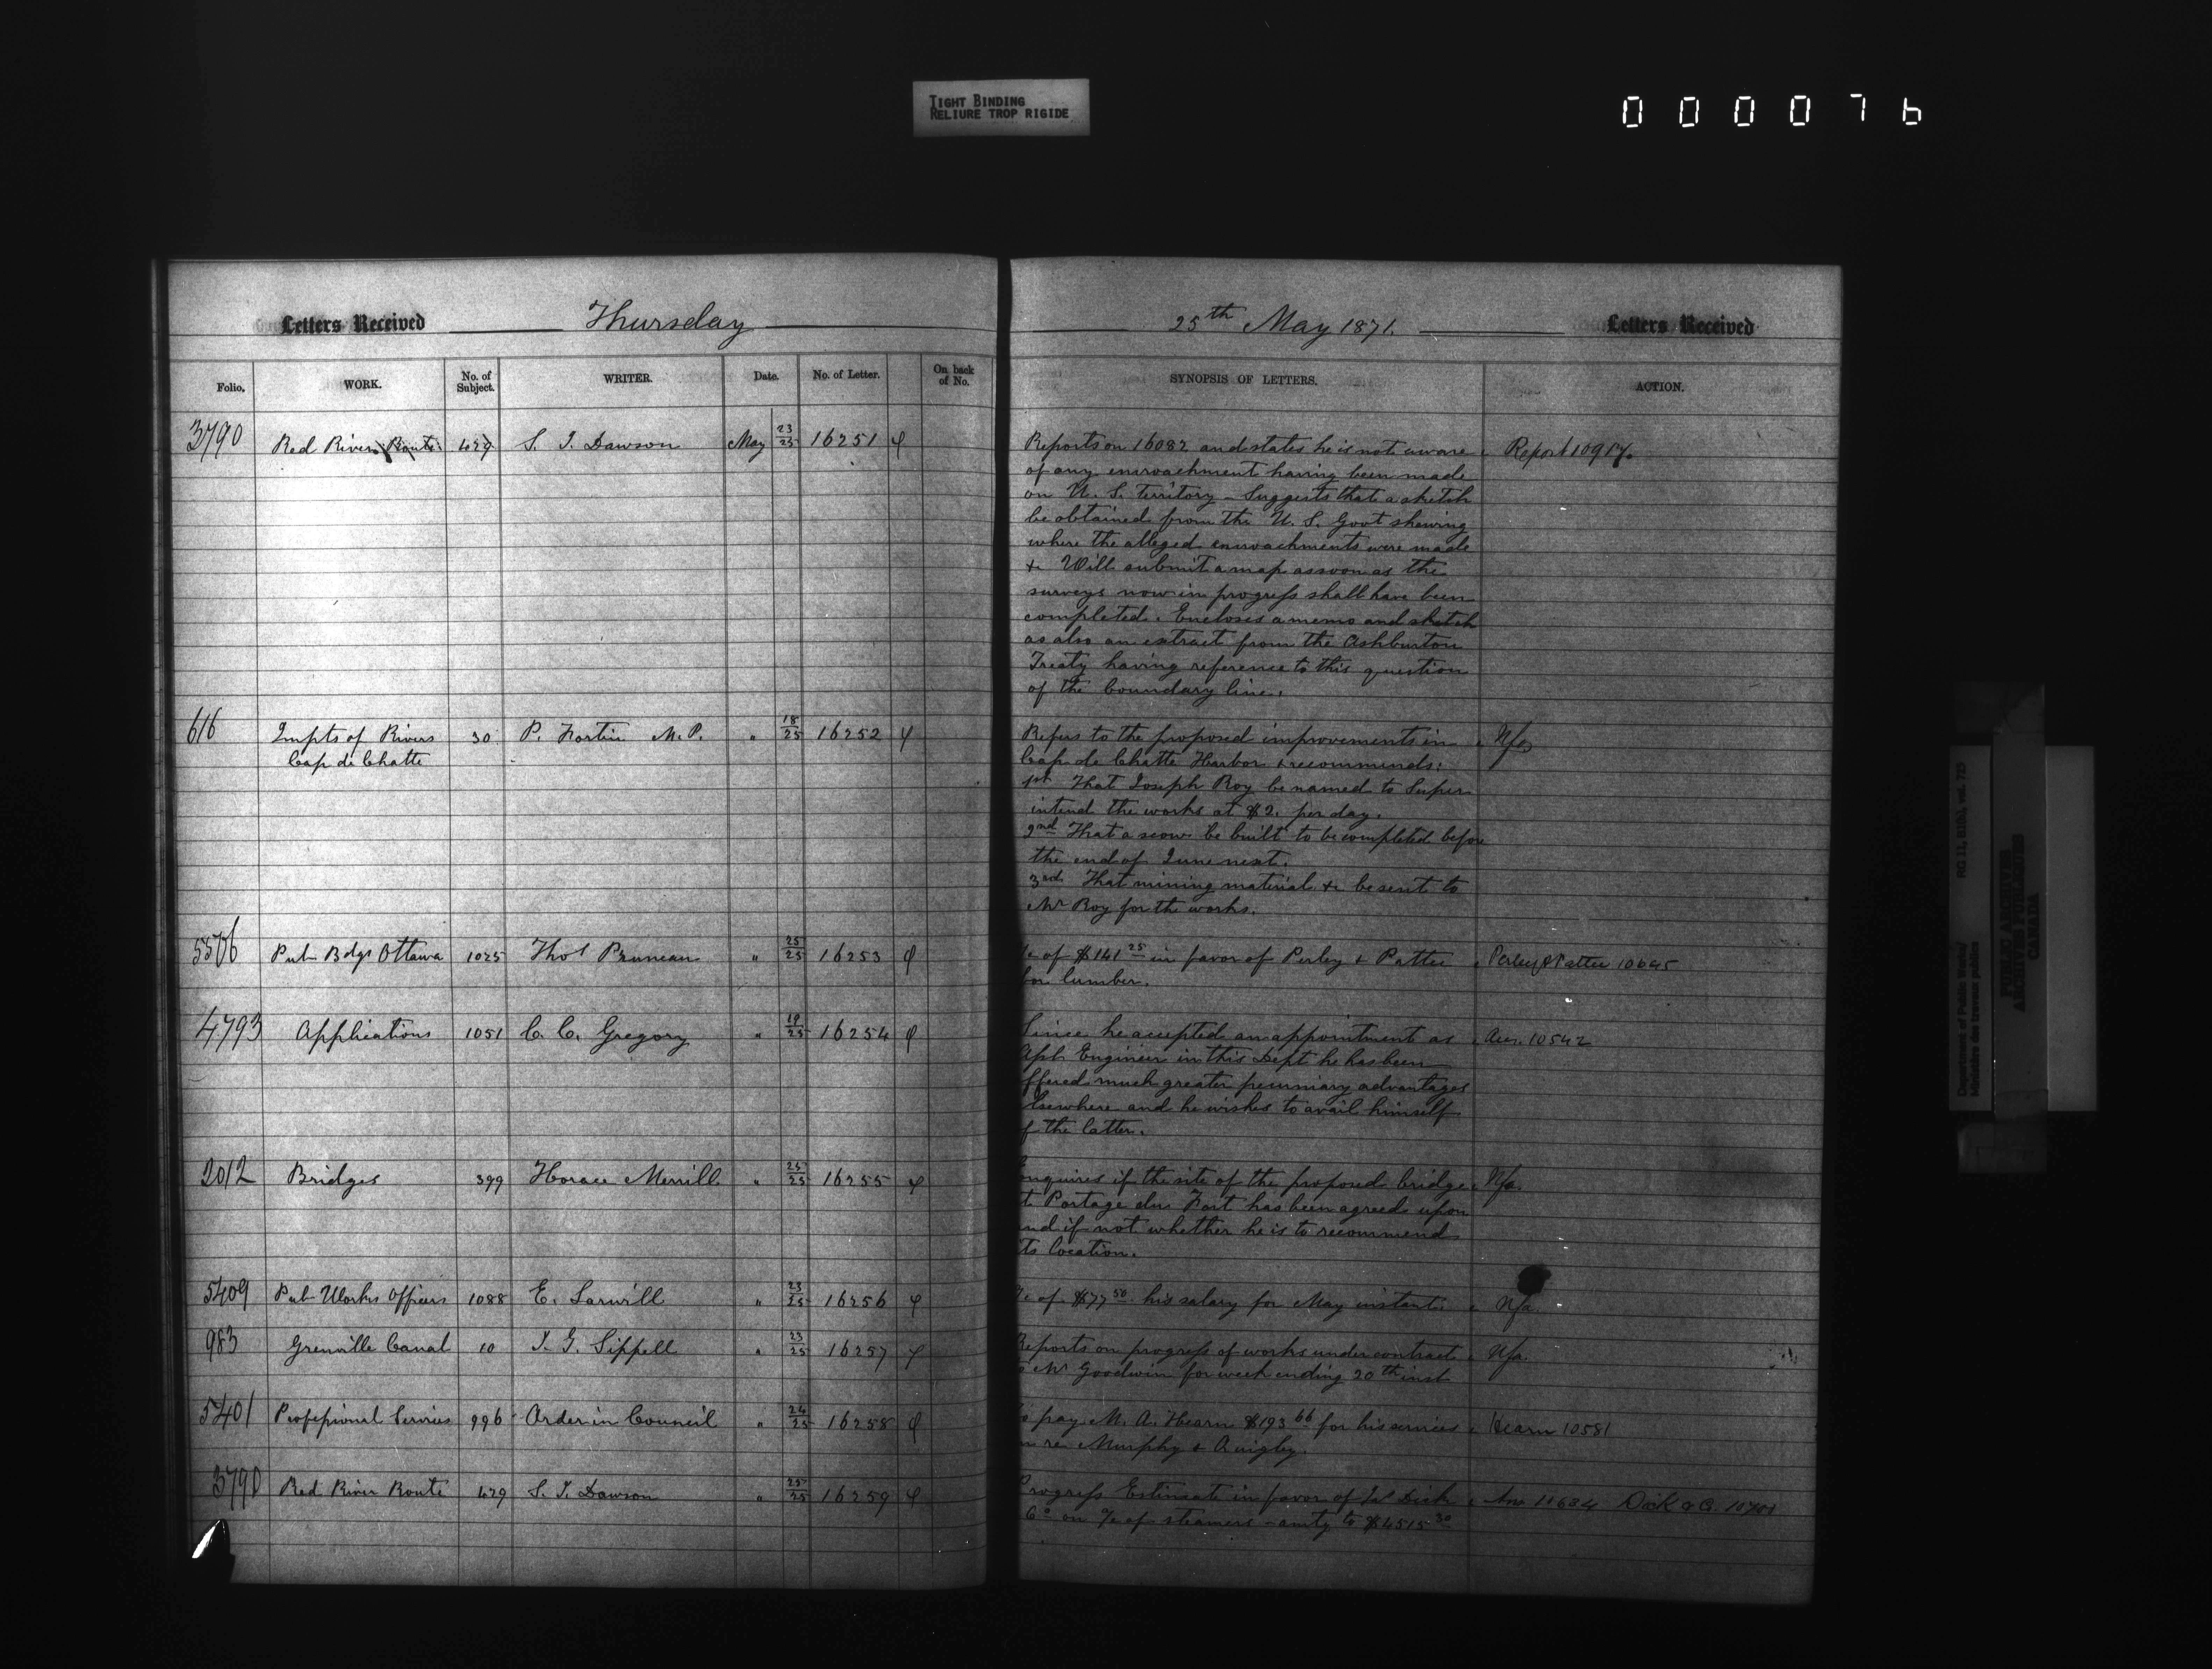 TIGHT BINDING
RELIURE TROP RIGIDE
000076
Letters Received Thursday
Folio. WORK. No. of Subject. WRITER. Date. No. of Letter. On back of No.
3790 Red River Route 429 S. J. Dawson May 23/25 16251
616 Impts of Rivers 30 P. Fortin M.P. " 18/25 16252
Cap de Chatte
5506 Pub Bdgs Ottawa 1025 Thos Pruneau " 25/25 16253
4793 Applications 1051 C. C. Gregory " 19/25 16254
2012 Bridges 399 Horace Merrill " 25/25 16255
5409 Pub Works Officers 1088 E. Larwill " 23/25 16256
983 Grenville Canal 10 J. G. Sippell " 23/25 16257
5401 Professional Services 996 Order in Council " 24/25 16258
3790 Red River Route 429 S. J. Dawson " 25/25 16259
25th May 1871. Letters Received
SYNOPSIS OF LETTERS. ACTION.
Reports on 16082 and states he is not aware Report 10917.
of any encroachment having been made
on U. S. Territory - Suggests that a sketch
be obtained from the U. S. Govt shewing
where the alleged encroachments were made
&c Will submit a map as soon as the
surveys now in progress shall have been
completed. Encloses a memo and sketch
as also an extract from the Ashburton
Treaty having reference to this question
of the boundary line.
Refers to the proposed improvements in Nfa
Cap de Chatte Harbor & recommends:
1st That Joseph Roy be named to Super
intend the works at $2. per day.
2nd That a scow be built to be completed before
the end of June next.
3rd That mining material &c be sent to
Mr Roy for the works.
of $141 25 in favor of Perley & Pattee Perley & Pattee 10695
for lumber.
Since he accepted an appointment as Acc. 10542
Engineer in this Dept he has been
ffered much greater pecuniary advantages
Elsewhere and he wishes to avail himself
f the latter.
Enquires if the site of the proposed bridge Nfa.
t Portage du Fort has been agreed upon
nd if not whether he is to recommend
ts location.
of $77 50 his salary for May instant Nfa.
Reports on progress of works under contract Nfa.
Mr Goodwin for week ending 20th inst
o pay M. A. Hearn $193 66 for his services Hearn 10581
n re Murphy & Quigley.
Progress Estimate in favor of Dick Ans 10684 Dick & Co.
Co on a/c of steamers - amtg to $4515 30
Department of Public Works/
Ministère des travaux publics
RG 11, B1(b), vol. 725
PUBLIC ARCHIVES
ARCHIVES PUBLIQUES
CANADA